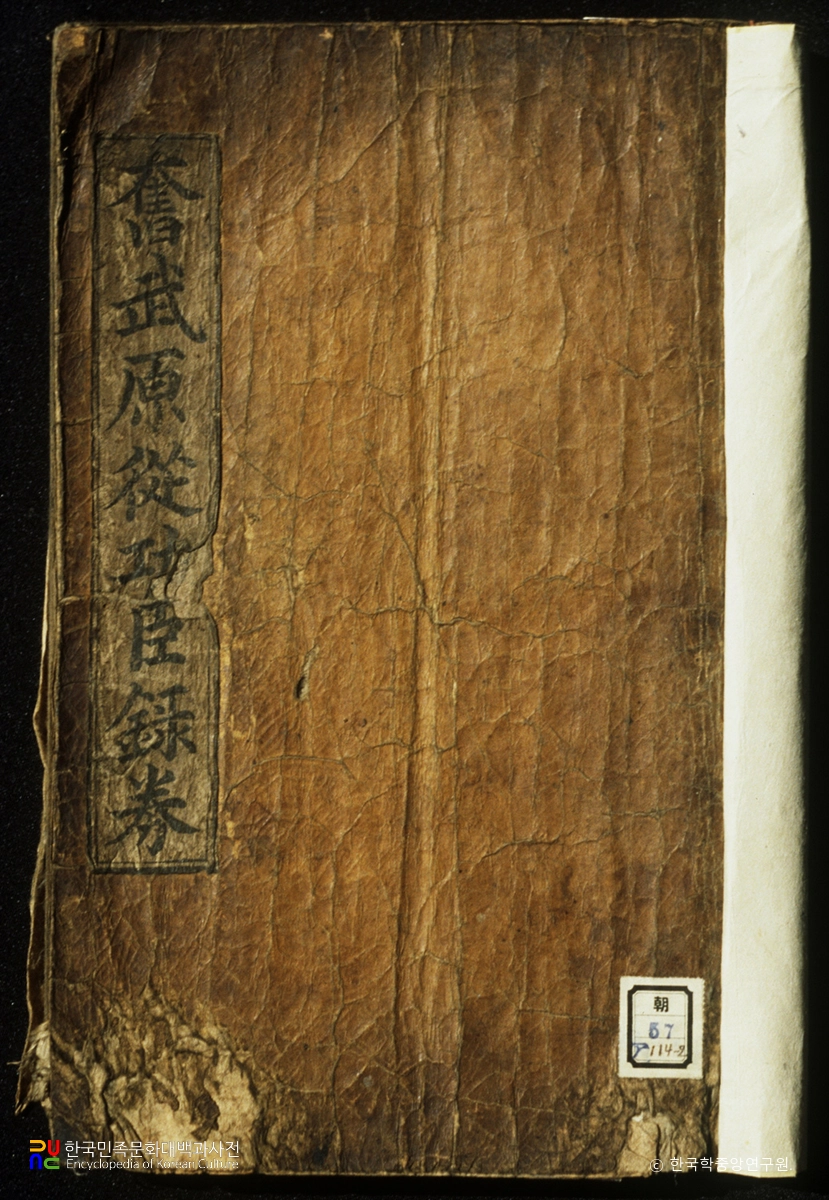 奮武原從功臣錄券
朝
57
ア114-2
한국민족문화대백과사전
Encyclopedia of Korean Culture
© 한국학중앙연구원